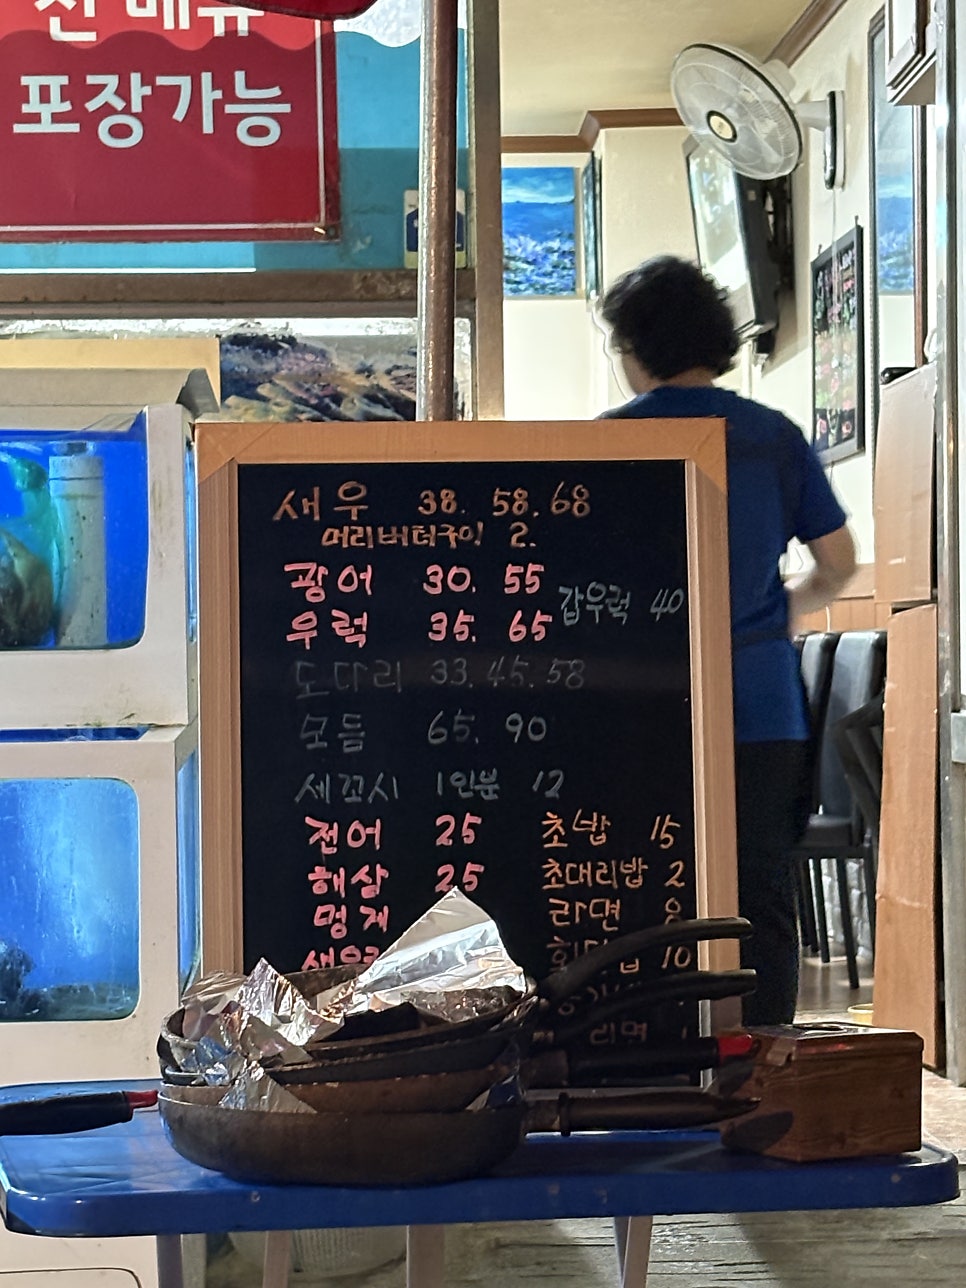 전메뉴
포장가능
새우 38. 58. 68
머리버터구이 2.
광어 30. 55
갑우럭 40
우럭 35. 65
도다리 33. 45. 58
모듬 65. 90
세꼬시 1인분 12
전어 25 초밥 15
해삼 25 초대리밥 2
멍게 라면
10